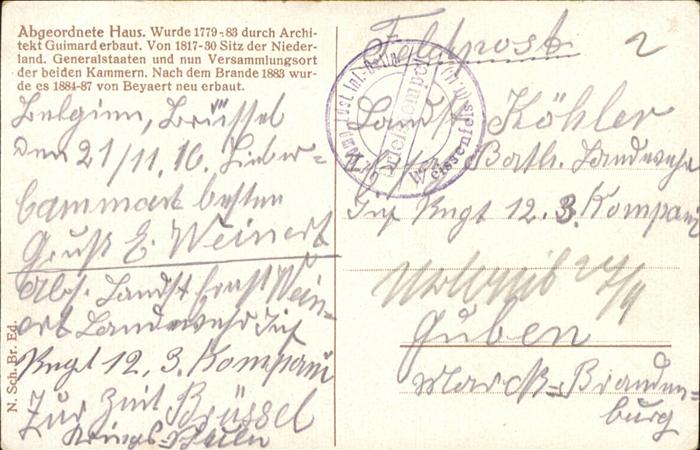 Abgeordnete Haus. Wurde 1779-83 durch Archi-
tekt Guimard erbaut. Von 1817-30 Sitz der Nieder-
land. Generalstaaten und nun Versammlungsort
der beiden Kammern. Nach dem Brande 1883 wur-
de es 1884-87 von Beyaert neu erbaut.
Belgien, Brüssel
den 21/11. 16. Lieber
Cammarat besten
Gruß E. Weinert
Abs. Landst Ernst Wein=
ert Landwehr Inf
Rngt 12, 3. Kompani
Zur Zeit Brüssel
N. Sch. Br. Ed.
Feldpost 2
Landst. Köhler
Batl. Landwehr
Inf Rngt 12. 3. Kompani
Guben
Mark=Branden=
burg
Briefstempel
Weissenfels